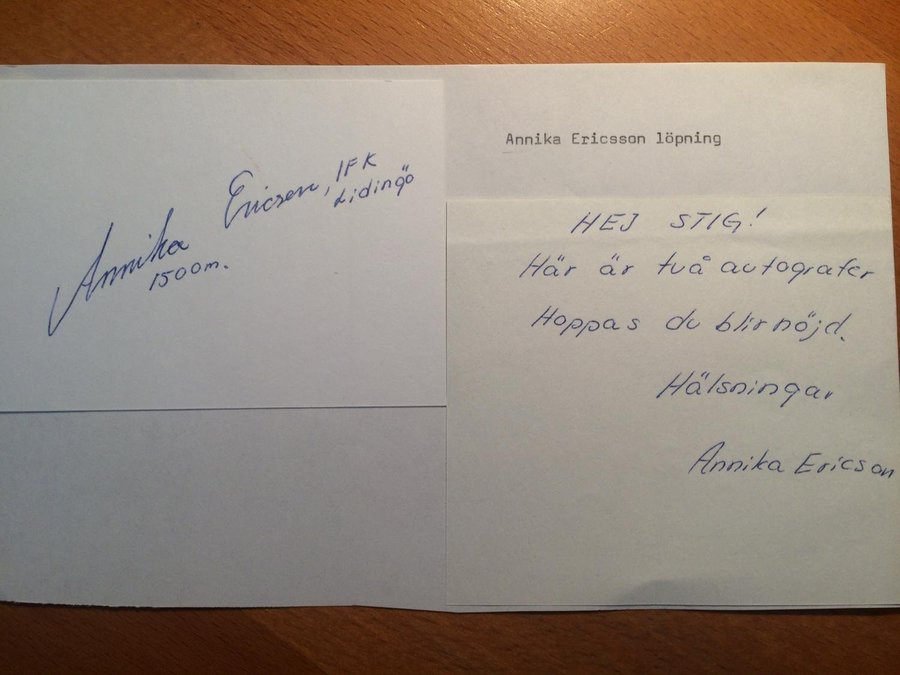 Annika Ericson, IFK
Lidingö
1500m.
Annika Ericsson löpning
HEJ STIG!
Här är två autografer
Hoppas du blir nöjd.
Hälsningar
Annika Ericson